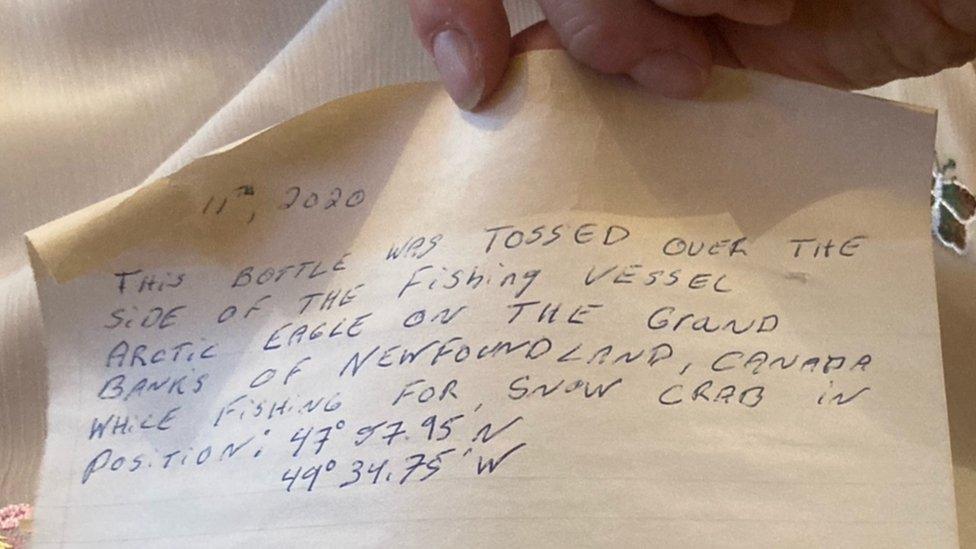 11TH, 2020
THIS BOTTLE WAS TOSSED OVER THE
SIDE OF THE Fishing VESSEL
ARCTIC EAGLE ON THE GRAND
BANKS OF NEWFOUNDLAND, CANADA
WHILE FISHING FOR, SNOW CRAB IN
POSITION: 47° 57.95'N
49° 34.75'W